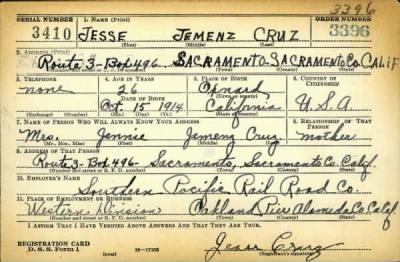 3396
SERIAL NUMBER 1. NAME (Print) ORDER NUMBER
3410 JESSE JEMENZ CRUZ 3396
(First) (Middle) (Last)
2. ADDRESS (Print)
Route 3-Box 496. SACRAMENTO-SACRAMENTO Co. CALIF
(Number and street or R. F. D. number) (Town) (County) (State)
3. TELEPHONE 4. AGE IN YEARS 5. PLACE OF BIRTH 6. COUNTRY OF CITIZENSHIP
none 26 Oxnard
DATE OF BIRTH (Town or county)
Oct. 15 1914 California U.S.A
(Exchange) (Number) (Mo.) (Day) (Yr.) (State or country)
7. NAME OF PERSON WHO WILL ALWAYS KNOW YOUR ADDRESS 8. RELATIONSHIP OF THAT PERSON
Mrs. Jennie Jemenz Cruz mother
(Mr., Mrs., Miss) (First) (Middle) (Last)
9. ADDRESS OF THAT PERSON
Route 3-Box 496- Sacramento, Sacramento Co. Calif.
(Number and street or R. F. D. number) (Town) (County) (State)
10. EMPLOYER'S NAME
Southern Pacific Rail Road Co.
11. PLACE OF EMPLOYMENT OR BUSINESS
Western Division Oakland Pier Alameda Co. Calif.
(Number and street or R. F. D. number) (Town) (County) (State)
I AFFIRM THAT I HAVE VERIFIED ABOVE ANSWERS AND THAT THEY ARE TRUE.
REGISTRATION CARD
D. S. S. Form 1 (over) 16-17105 Jesse Cruz
(Registrant's signature)